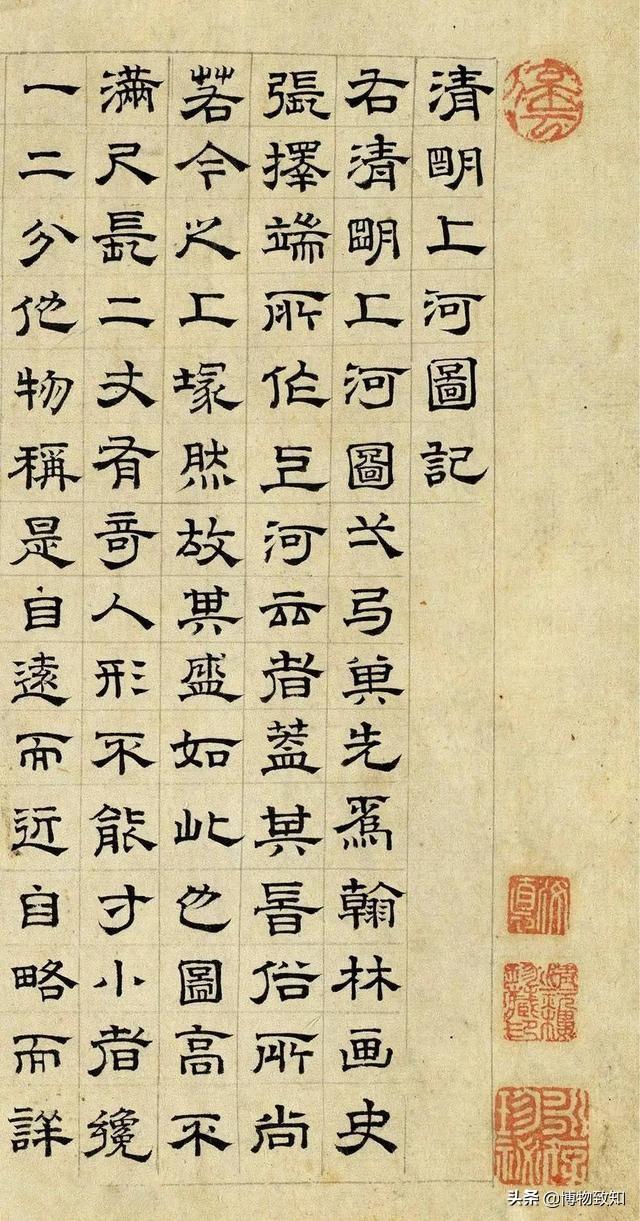 清明上河圖記
右清明上河圖弌弓先爲翰林画史
張擇端所作河云者蓋其旹俗所尚
若今之上塚然故其盛如此也圖高不
滿尺長二丈有奇人形不能寸小者纔
一二分他物稱是自遠而近自略而詳
头条 @博物致知